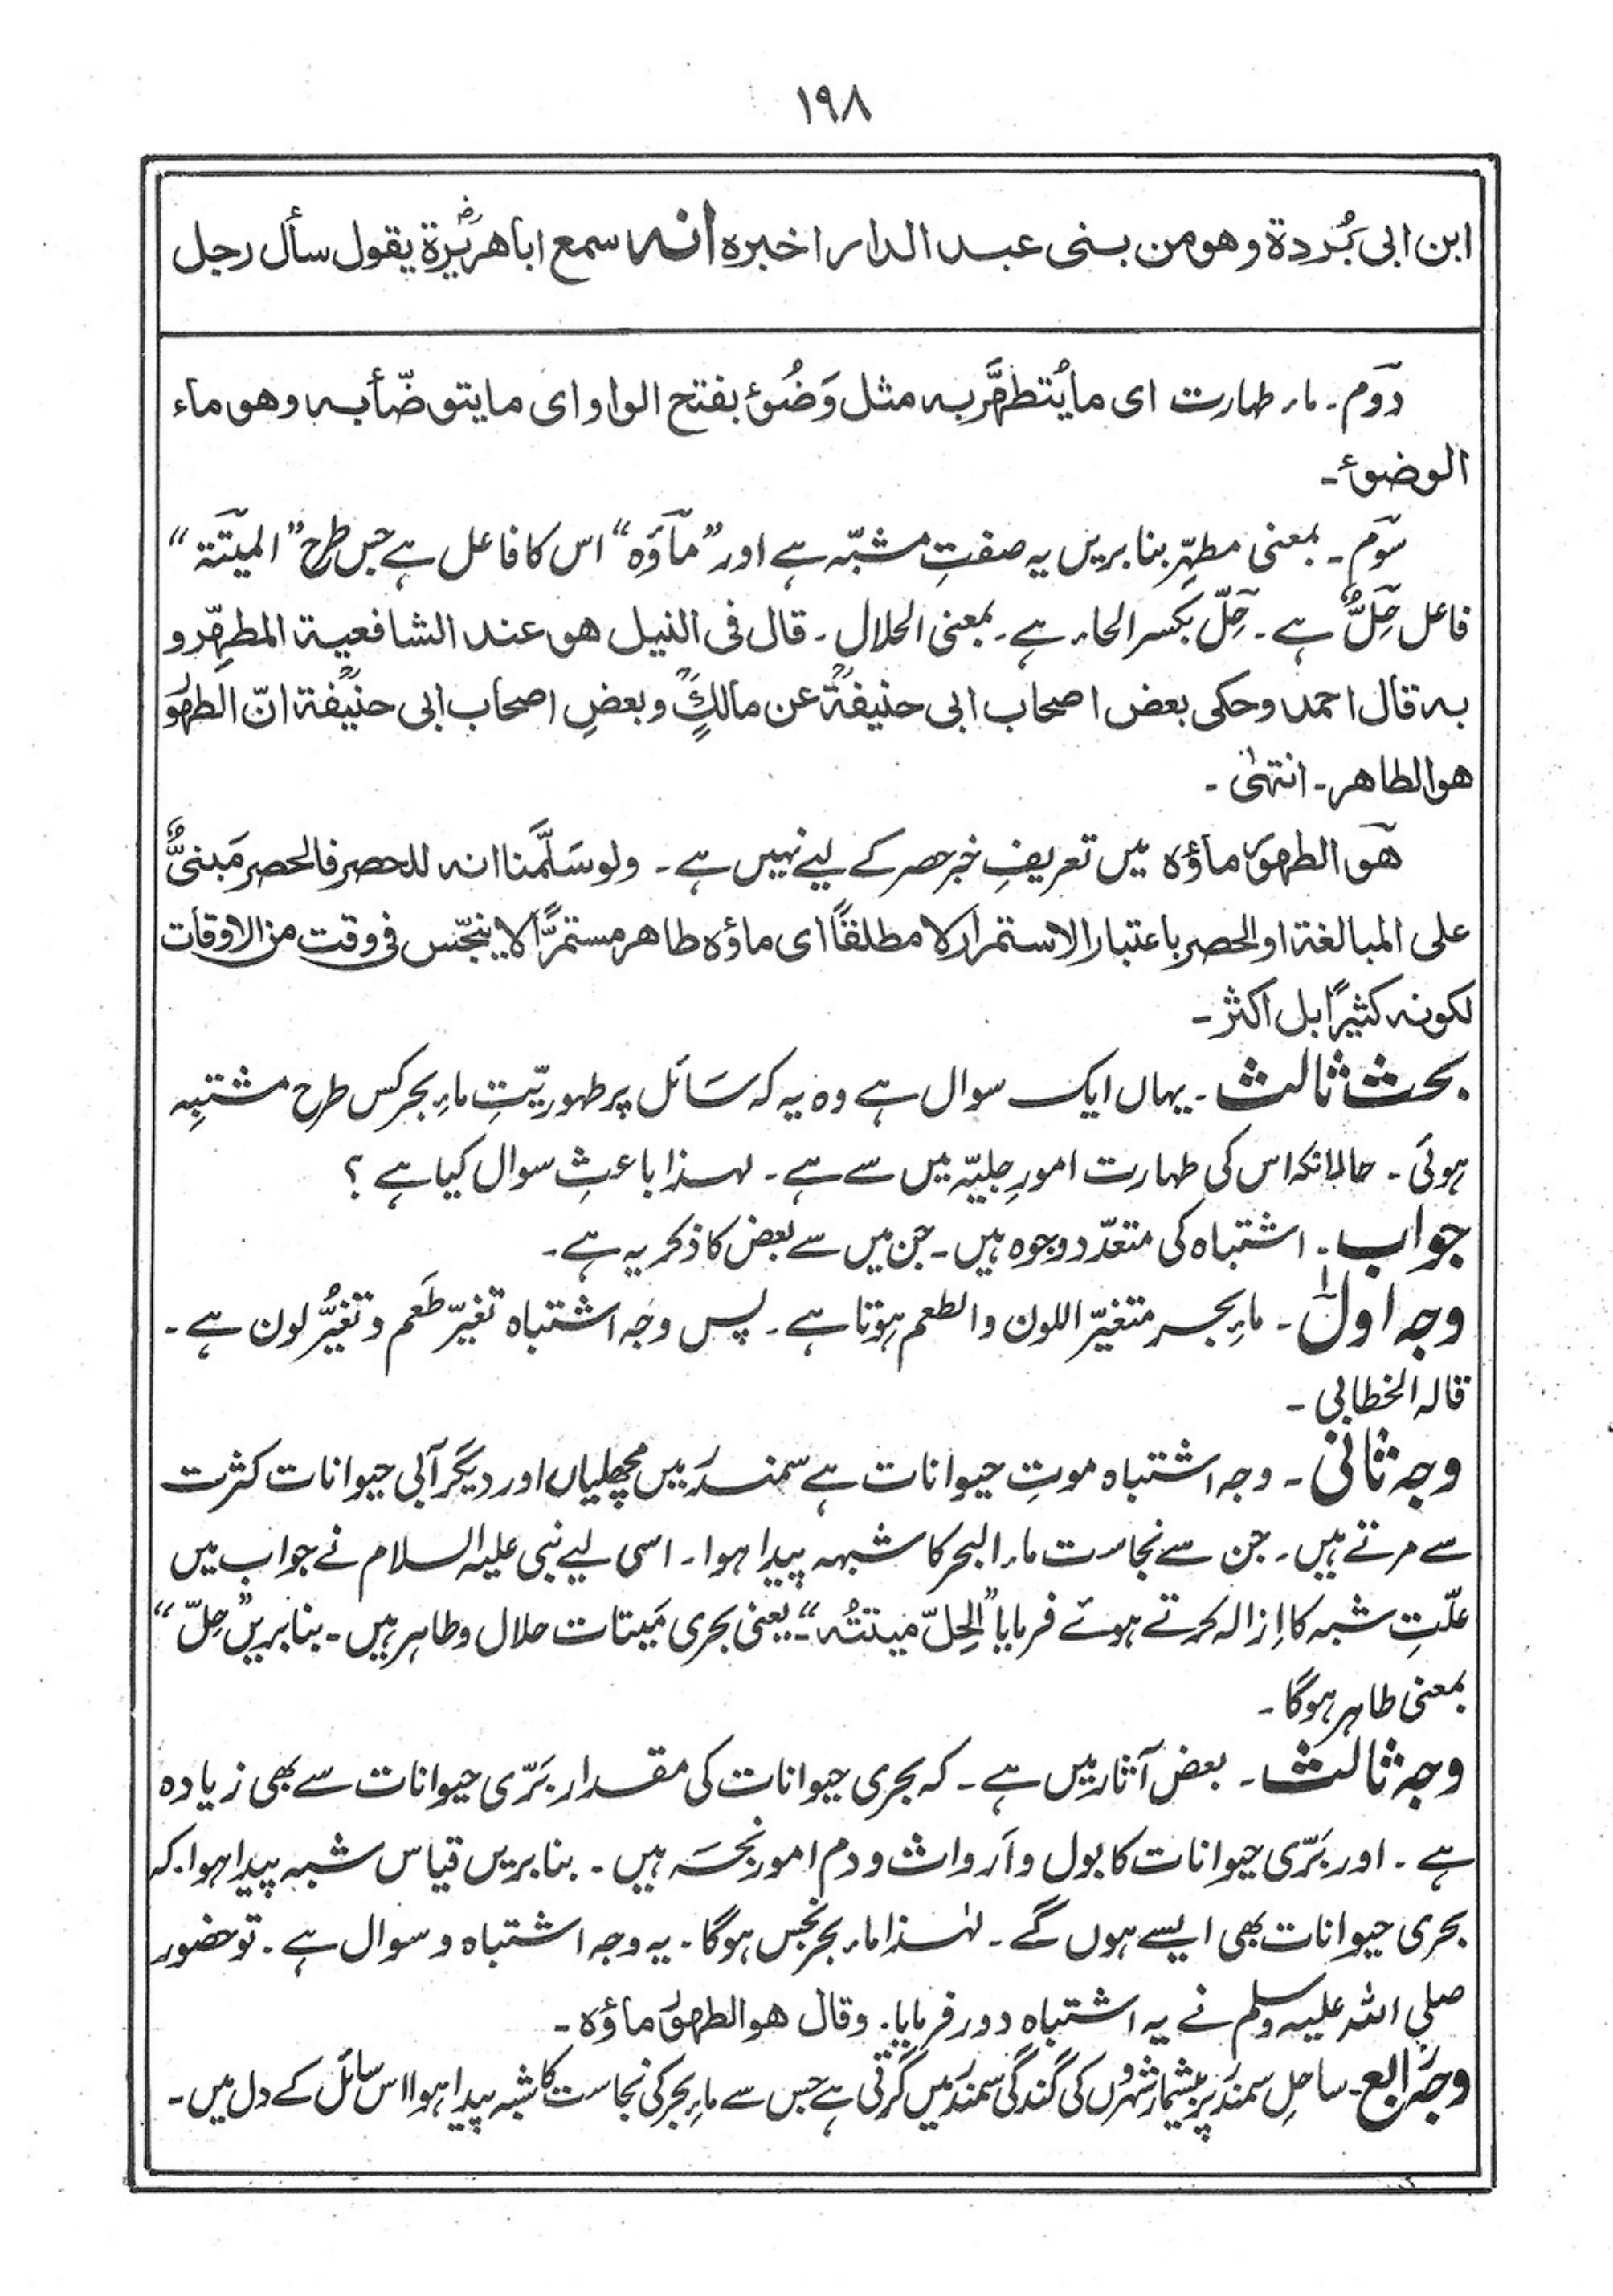 ۱۹۸
ابن ابی بُردۃ وھو من بنی عبد الدار اخبرہ انہ سمع اباھریرۃؓ یقول سأل رجل
دوم۔ ماء طہارت ای ما یُتطھَّر بہ مثل وَضُوئ بفتح الواو ای ما یتوضّأ بہ وھو ماء
الوضوئ۔
سوم۔ بمعنی مطہِّر بنا بریں یہ صفتِ مشبّہ ہے اور ”ماؤہ“ اس کا فاعل ہے جس طرح ”المیتۃ“
فاعل حِلٌّ ہے۔ حِلّ بکسر الحاء ہے۔ بمعنی الحلال۔ قال فی النیل ھو عند الشافعیۃ المطھِّر و
بہ قال احمد وحکی بعض اصحاب ابی حنیفۃؒ عن مالکؒ وبعضِ اصحاب ابی حنیفۃؒ انّ الطھور
ھو الطاھر۔ انتہیٰ۔
ھو الطھور ماؤہ میں تعریفِ خبر حصر کے لیے نہیں ہے۔ ولو سَلَّمنا انہ للحصر فالحصر مَبنیٌّ
علی المبالغۃ او الحصر باعتبار الاستمرار لا مطلقًا ای ماؤہ طاھر مستمرًّا لا ینجّس فی وقت من الاوقات
لکونہ کثیرًا بل اکثر۔
بحث ثالث۔ یہاں ایک سوال ہے وہ یہ کہ سائل پر طہوریّتِ ماءِ بحر کس طرح مشتبِہ
ہوئی۔ حالانکہ اس کی طہارت امورِ جلیّہ میں سے ہے۔ لہذا باعثِ سوال کیا ہے ؟
جواب۔ اشتباہ کی متعدّد وجوہ ہیں۔ جن میں سے بعض کا ذکر یہ ہے۔
وجہ اول۔ ماءِ بحر متغیّر اللون والطعم ہوتا ہے۔ پس وجہ اشتباہ تغیّر طَعم و تغیُّر لون ہے۔
قالہ الخطابی۔
وجہ ثانی۔ وجہ اشتباہ موتِ حیوانات ہے سمندر میں مچھلیاں اور دیگر آبی حیوانات کثرت
سے مرتے ہیں۔ جن سے نجاست ماء البحر کا شبہہ پیدا ہوا۔ اسی لیے نبی علیہ السلام نے جواب میں
علّتِ شبہ کا اِزالہ کرتے ہوئے فرمایا ”الحِلّ میتتُہ“۔ یعنی بحری مَیتات حلال وطاہر ہیں۔ بنا بریں ”حِلّ“
بمعنی طاہر ہوگا۔
وجہ ثالث۔ بعض آثار میں ہے۔ کہ بحری حیوانات کی مقدار بَرّی حیوانات سے بھی زیادہ
ہے۔ اور بَرّی حیوانات کا بول و اَرواث و دم امور نجسَہ ہیں۔ بنا بریں قیاس شبہ پیدا ہوا۔ کہ
بحری حیوانات بھی ایسے ہوں گے۔ لہٰذا ماء بحر نجس ہوگا۔ یہ وجہ اشتباہ و سوال ہے۔ تو حضور
صلی اللہ علیہ وسلم نے یہ اشتباہ دور فرمایا۔ وقال ھو الطھور ماؤہ۔
وجہ رابع۔ ساحلِ سمندر پر بیشمار شہروں کی گندگی سمندر میں گرتی ہے جس سے ماءِ بحر کی نجاست کا شبہ پیدا ہوا اس سائل کے دل میں۔